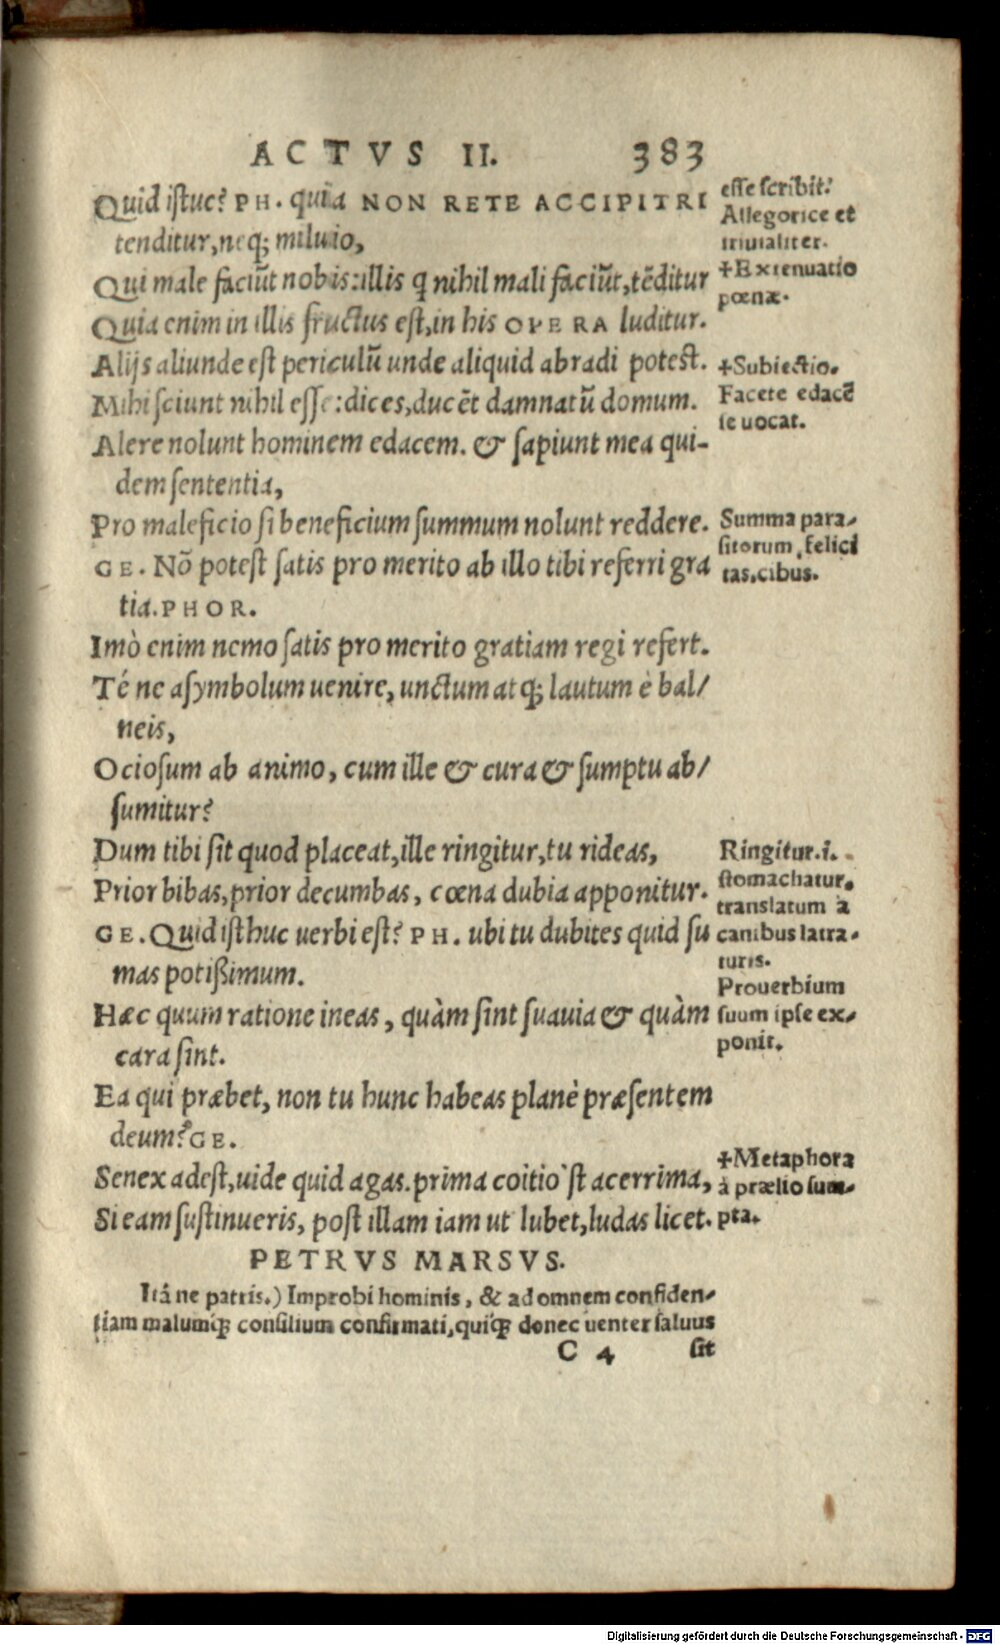 ACTVS II. 383
Quid istuc? PH. quia NON RETE ACCIPITRI
tenditur, neq; miluio,
Qui male faciũt nobis: illis q nihil mali faciũt, tẽditur
Quia enim in illis fructus est, in his OPERA luditur.
Alijs aliunde est periculũ unde aliquid abradi potest.
Mihi sciunt nihil esse: dices, ducẽt damnatũ domum.
Alere nolunt hominem edacem. & sapiunt mea qui-
dem sententia,
Pro maleficio si beneficium summum nolunt reddere.
GE. Nõ potest satis pro merito ab illo tibi referri gra
tia. PHOR.
Imò enim nemo satis pro merito gratiam regi refert.
Té ne asymbolum uenire, unctum atq; lautum è bal/
neis,
Ociosum ab animo, cum ille & cura & sumptu ab/
sumitur?
Dum tibi sit quod placeat, ille ringitur, tu rideas,
Prior bibas, prior decumbas, cœna dubia apponitur.
GE. Quid isthuc uerbi est? PH. ubi tu dubites quid su
mas potißimum.
Hæc quum ratione ineas, quàm sint suauia & quàm
cara sint.
Ea qui præbet, non tu hunc habeas planè præsentem
deum? GE.
Senex adest, uide quid agas. prima coitio'st acerrima,
Si eam sustinueris, post illam iam ut lubet, ludas licet.
esse scribit.
Allegorice et
triuialiter.
+Extenuatio
pœnæ.
+Subiectio.
Facete edacẽ
se uocat.
Summa para-
sitorum felici
tas, cibus.
Ringitur.i.
stomachatur,
translatum à
canibus latra-
turis.
Prouerbium
suum ipse ex-
ponit.
+Metaphora
à prælio sum-
pta.
PETRVS MARSVS.
Itá ne patris.) Improbi hominis, & ad omnem confiden-
tiam malumq; consilium confirmati, quiq; donec uenter saluus
C 4 sit
Digitalisierung gefördert durch die Deutsche Forschungsgemeinschaft - DFG